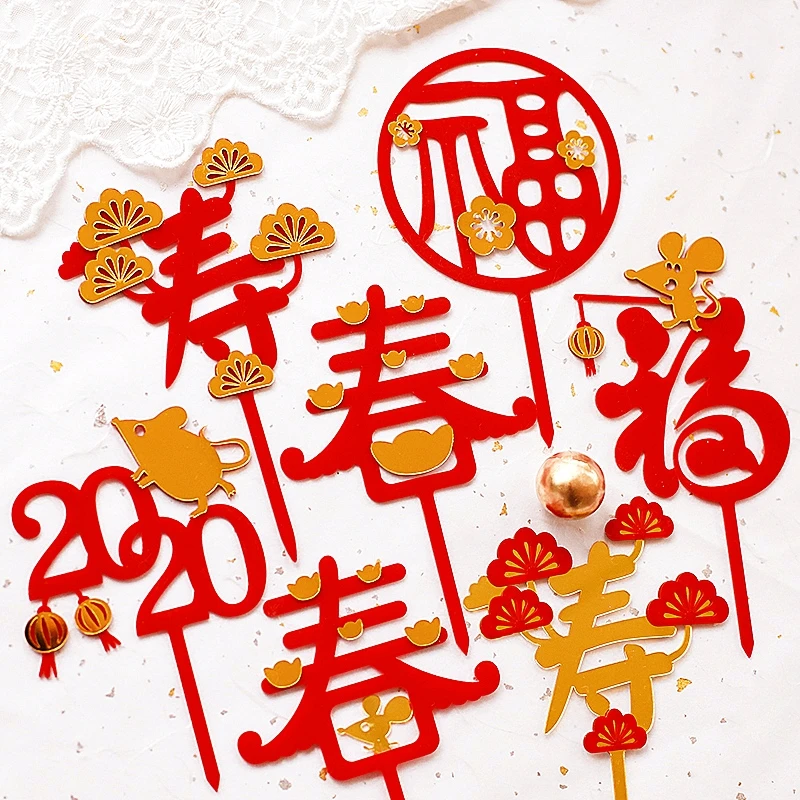 福
寿
春
福
2020
春
寿